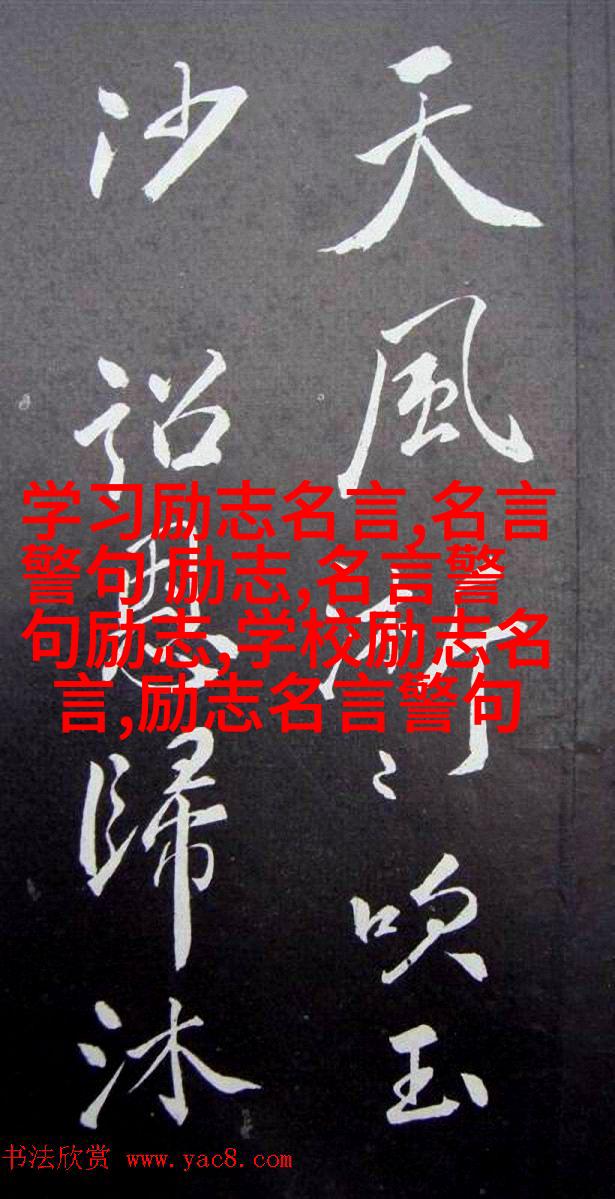 天風淅〻吹玉
沙詔恩歸沐
学习励志名言,名言
警句 励志,名言警
句励志,学校励志名
言,励志名言警句
书法欣赏 www.yac8.com